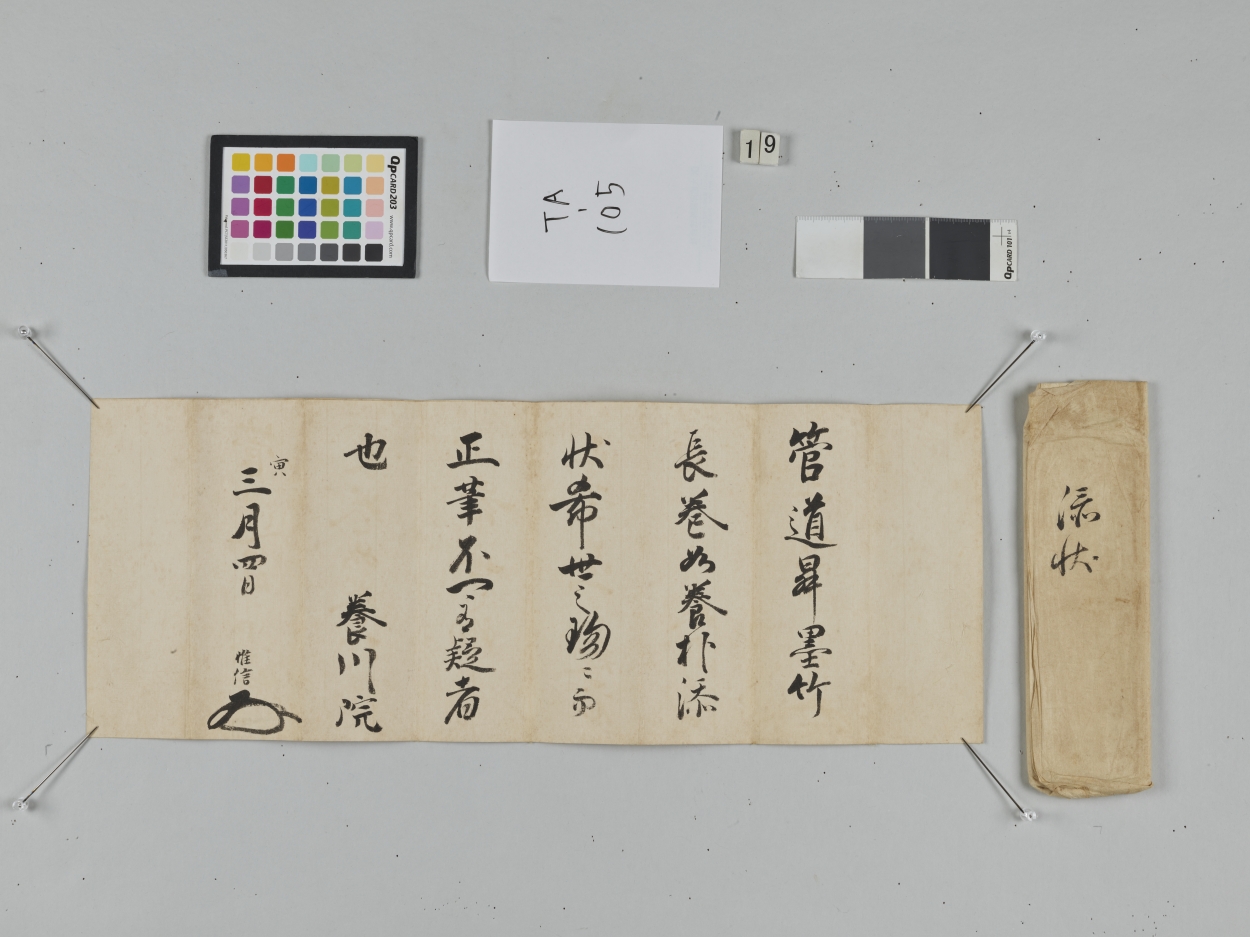 QPCARD 203 www.qpcard.com
TA-105
19
QPCARD 101
添状
管道昇墨竹
長巻如養朴添
状希世之珎ニ而
正筆不可有疑者
也
養川院
寅
三月四日
惟信